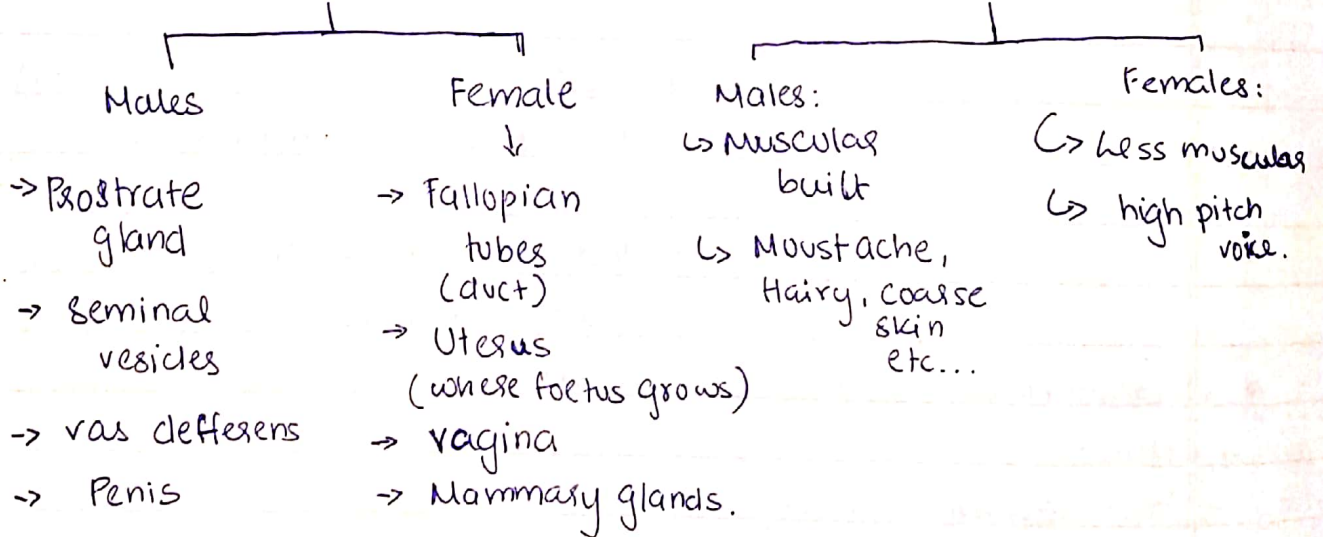 Males
→ Prostrate
gland
→ seminal
vesicles
→ vas defferens
→ Penis
Female
↓
→ Fallopian
tubes
(duct)
→ Uterus
(where foetus grows)
→ vagina
→ Mammary glands.
Males:
↳ Muscular
built
↳ Moustache,
Hairy, coarse
skin
etc...
Females:
↳ Less muscular
↳ high pitch
voice.